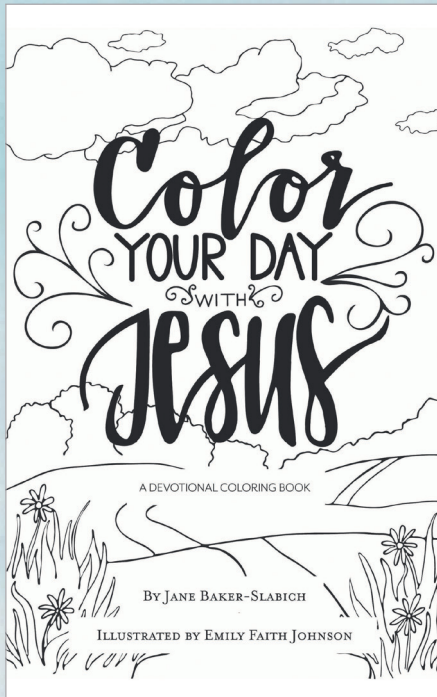 Color
YOUR DAY
WITH
Jesus
A DEVOTIONAL COLORING BOOK
BY JANE BAKER-SLABICH
ILLUSTRATED BY EMILY FAITH JOHNSON